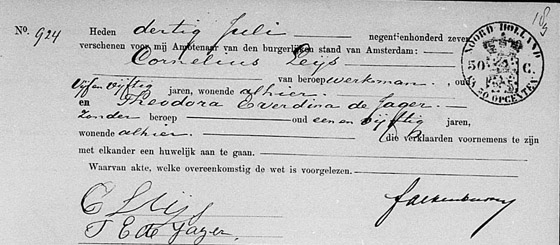 No. 924
Heden dertig Juli negentienhonderd zeven
verschenen voor mij Ambtenaar van den burgerlijken stand van Amsterdam:
Cornelius Leijs
van beroep werkman, oud
vijf en vijftig jaren, wonende alhier.
en Theodora Everdina de Jager.
zonder beroep oud een en vijftig jaren,
wonende alhier. die verklaarden voornemens te zijn
met elkander een huwelijk aan te gaan.
Waarvan akte, welke overeenkomstig de wet is voorgelezen.
NOORD HOLLAND
50 C.
EN 50 OPCENTEN
C Leijs
T E de Jager.